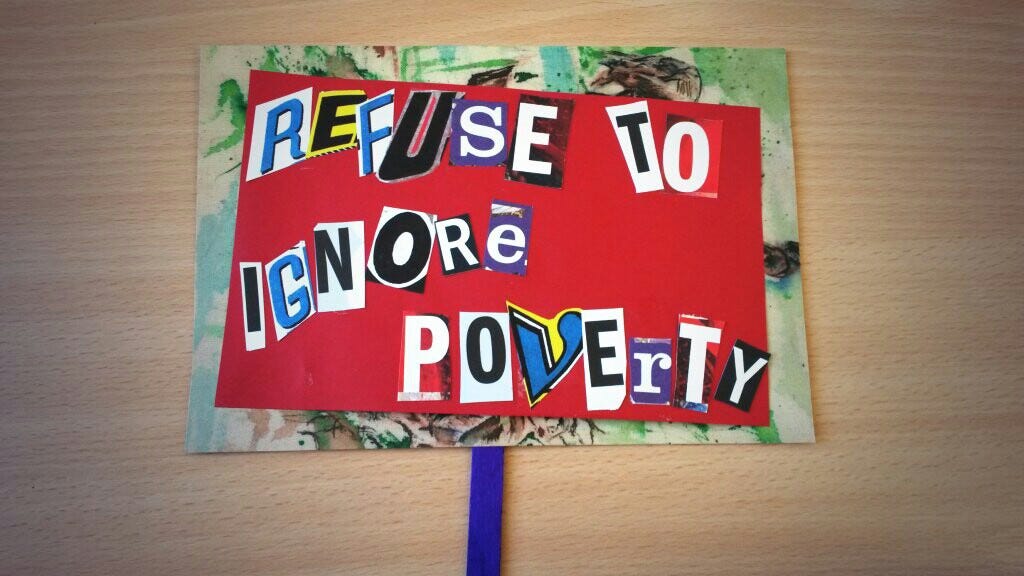 REFUSE TO
IGNORe
POVErTY